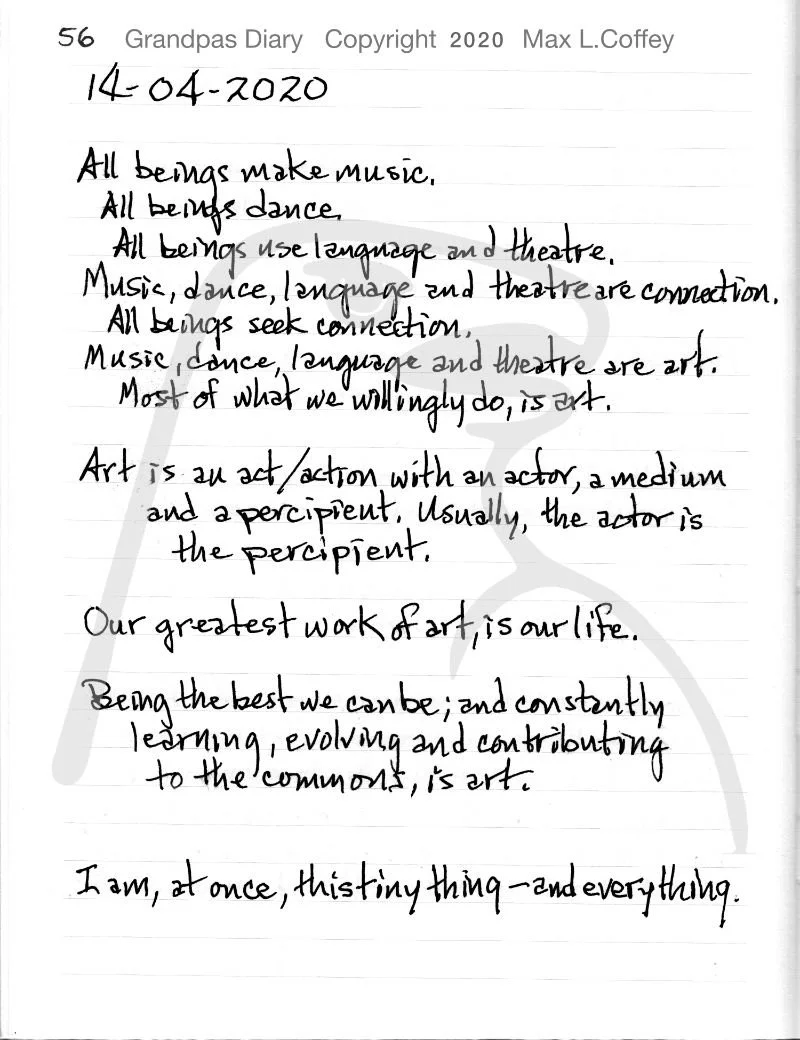 56 Grandpas Diary Copyright 2020 Max L.Coffey
14-04-2020
All beings make music.
All beings dance.
All beings use language and theatre.
Music, dance, language and theatre are connection.
All beings seek connection.
Music, dance, language and theatre are art.
Most of what we willingly do, is art.
Art is an act/action with an actor, a medium
and a percipient. Usually, the actor is
the percipient.
Our greatest work of art, is our life.
Being the best we can be; and constantly
learning, evolving and contributing
to the commons, is art.
I am, at once, this tiny thing – and everything.